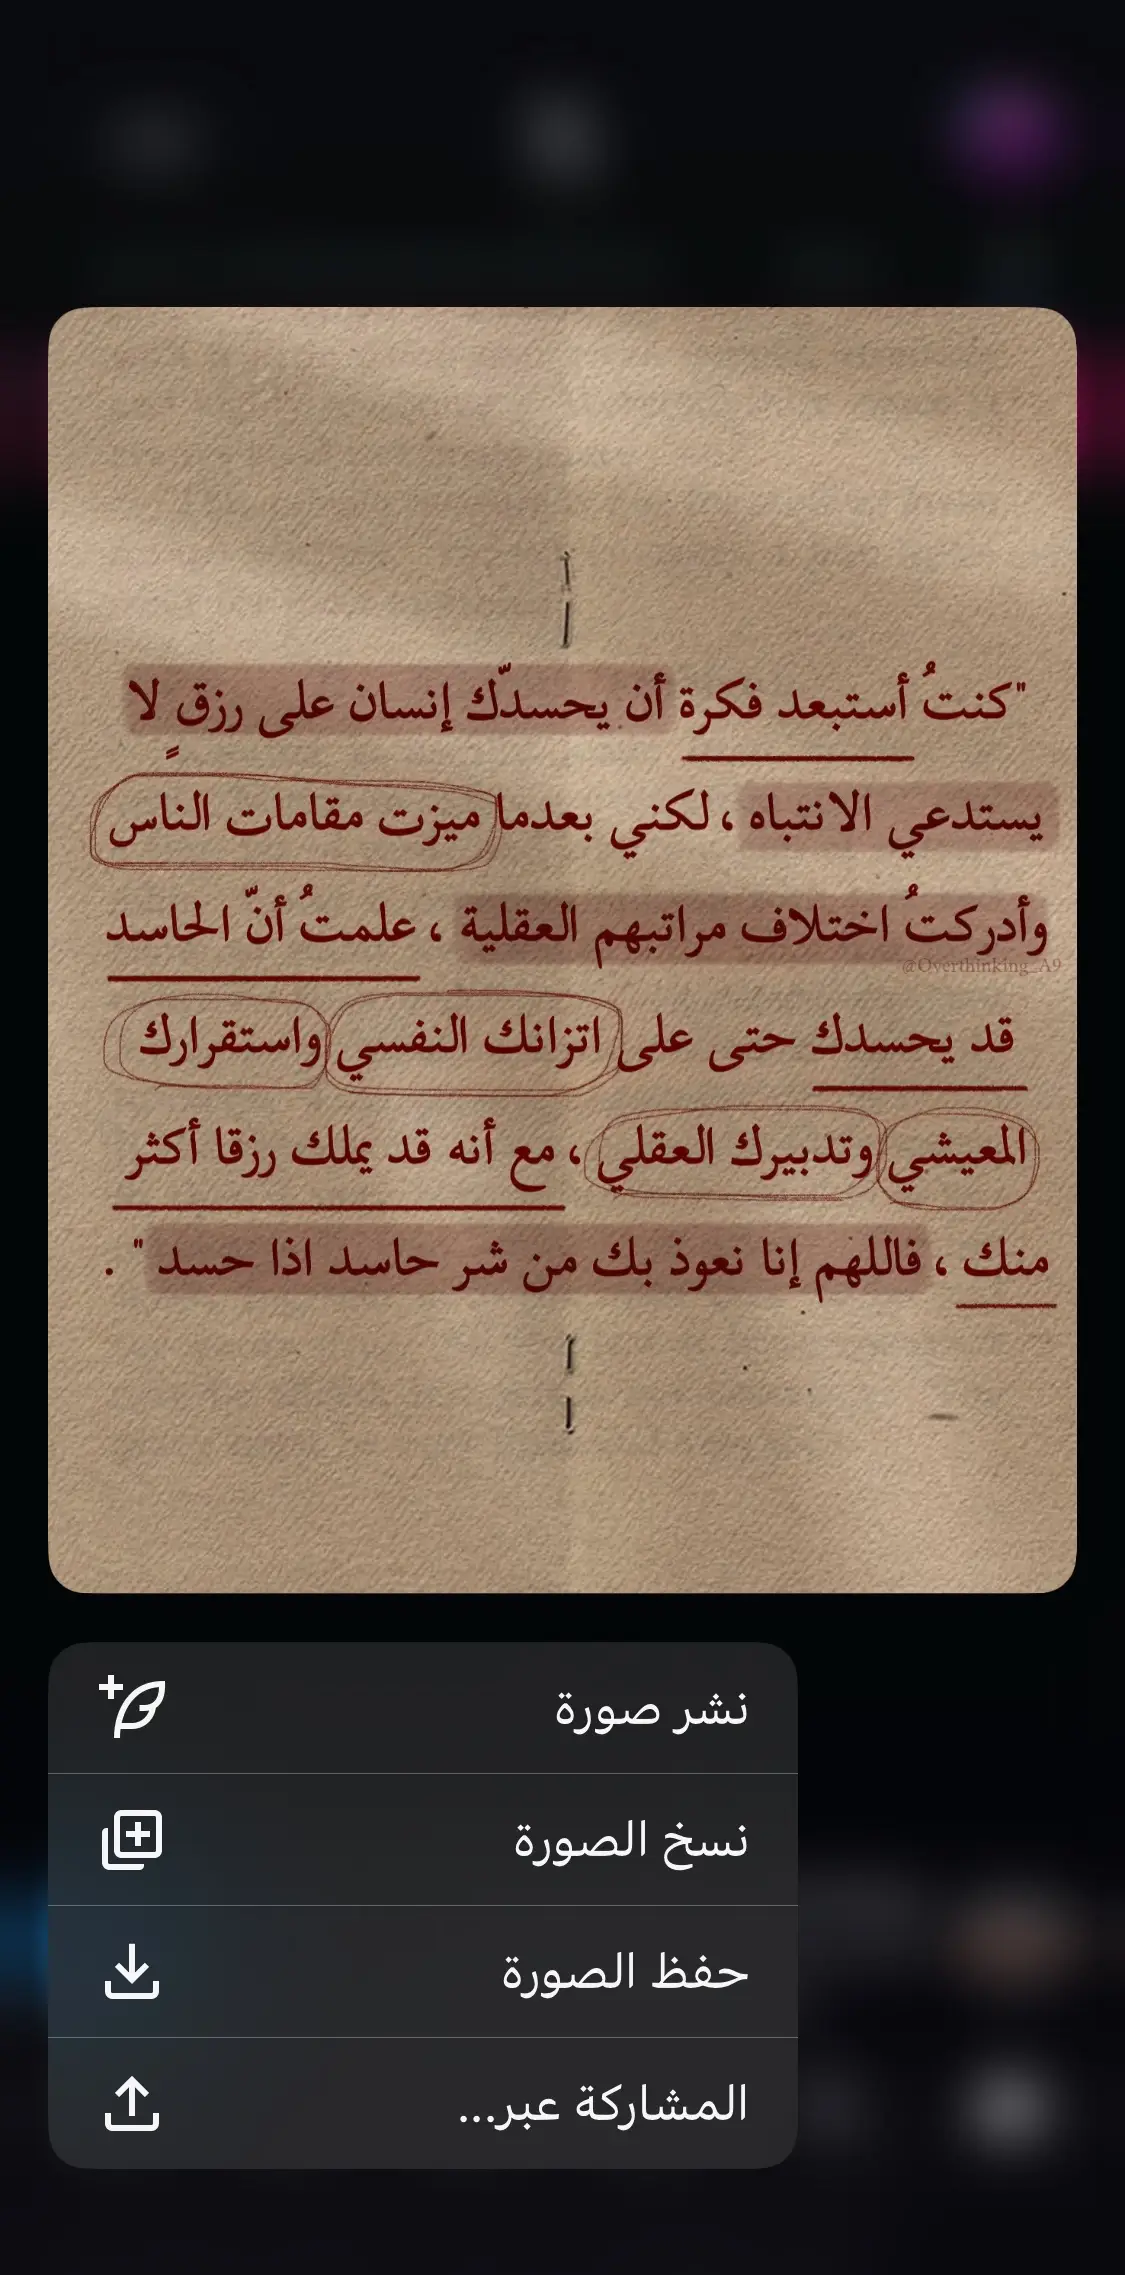 "كنتُ أستبعد فكرة أن يحسدّك إنسان على رزقٍ لا
يستدعي الانتباه ، لكني بعدما ميزت مقامات الناس
وأدركتُ اختلاف مراتبهم العقلية ، علمتُ أنّ الحاسد
@Overthinking_A9
قد يحسدك حتى على اتزانك النفسي واستقرارك
المعيشي وتدبيرك العقلي ، مع أنه قد يملك رزقا أكثر
منك ، فاللهم إنا نعوذ بك من شر حاسد اذا حسد " .
نشر صورة
نسخ الصورة
حفظ الصورة
المشاركة عبر...